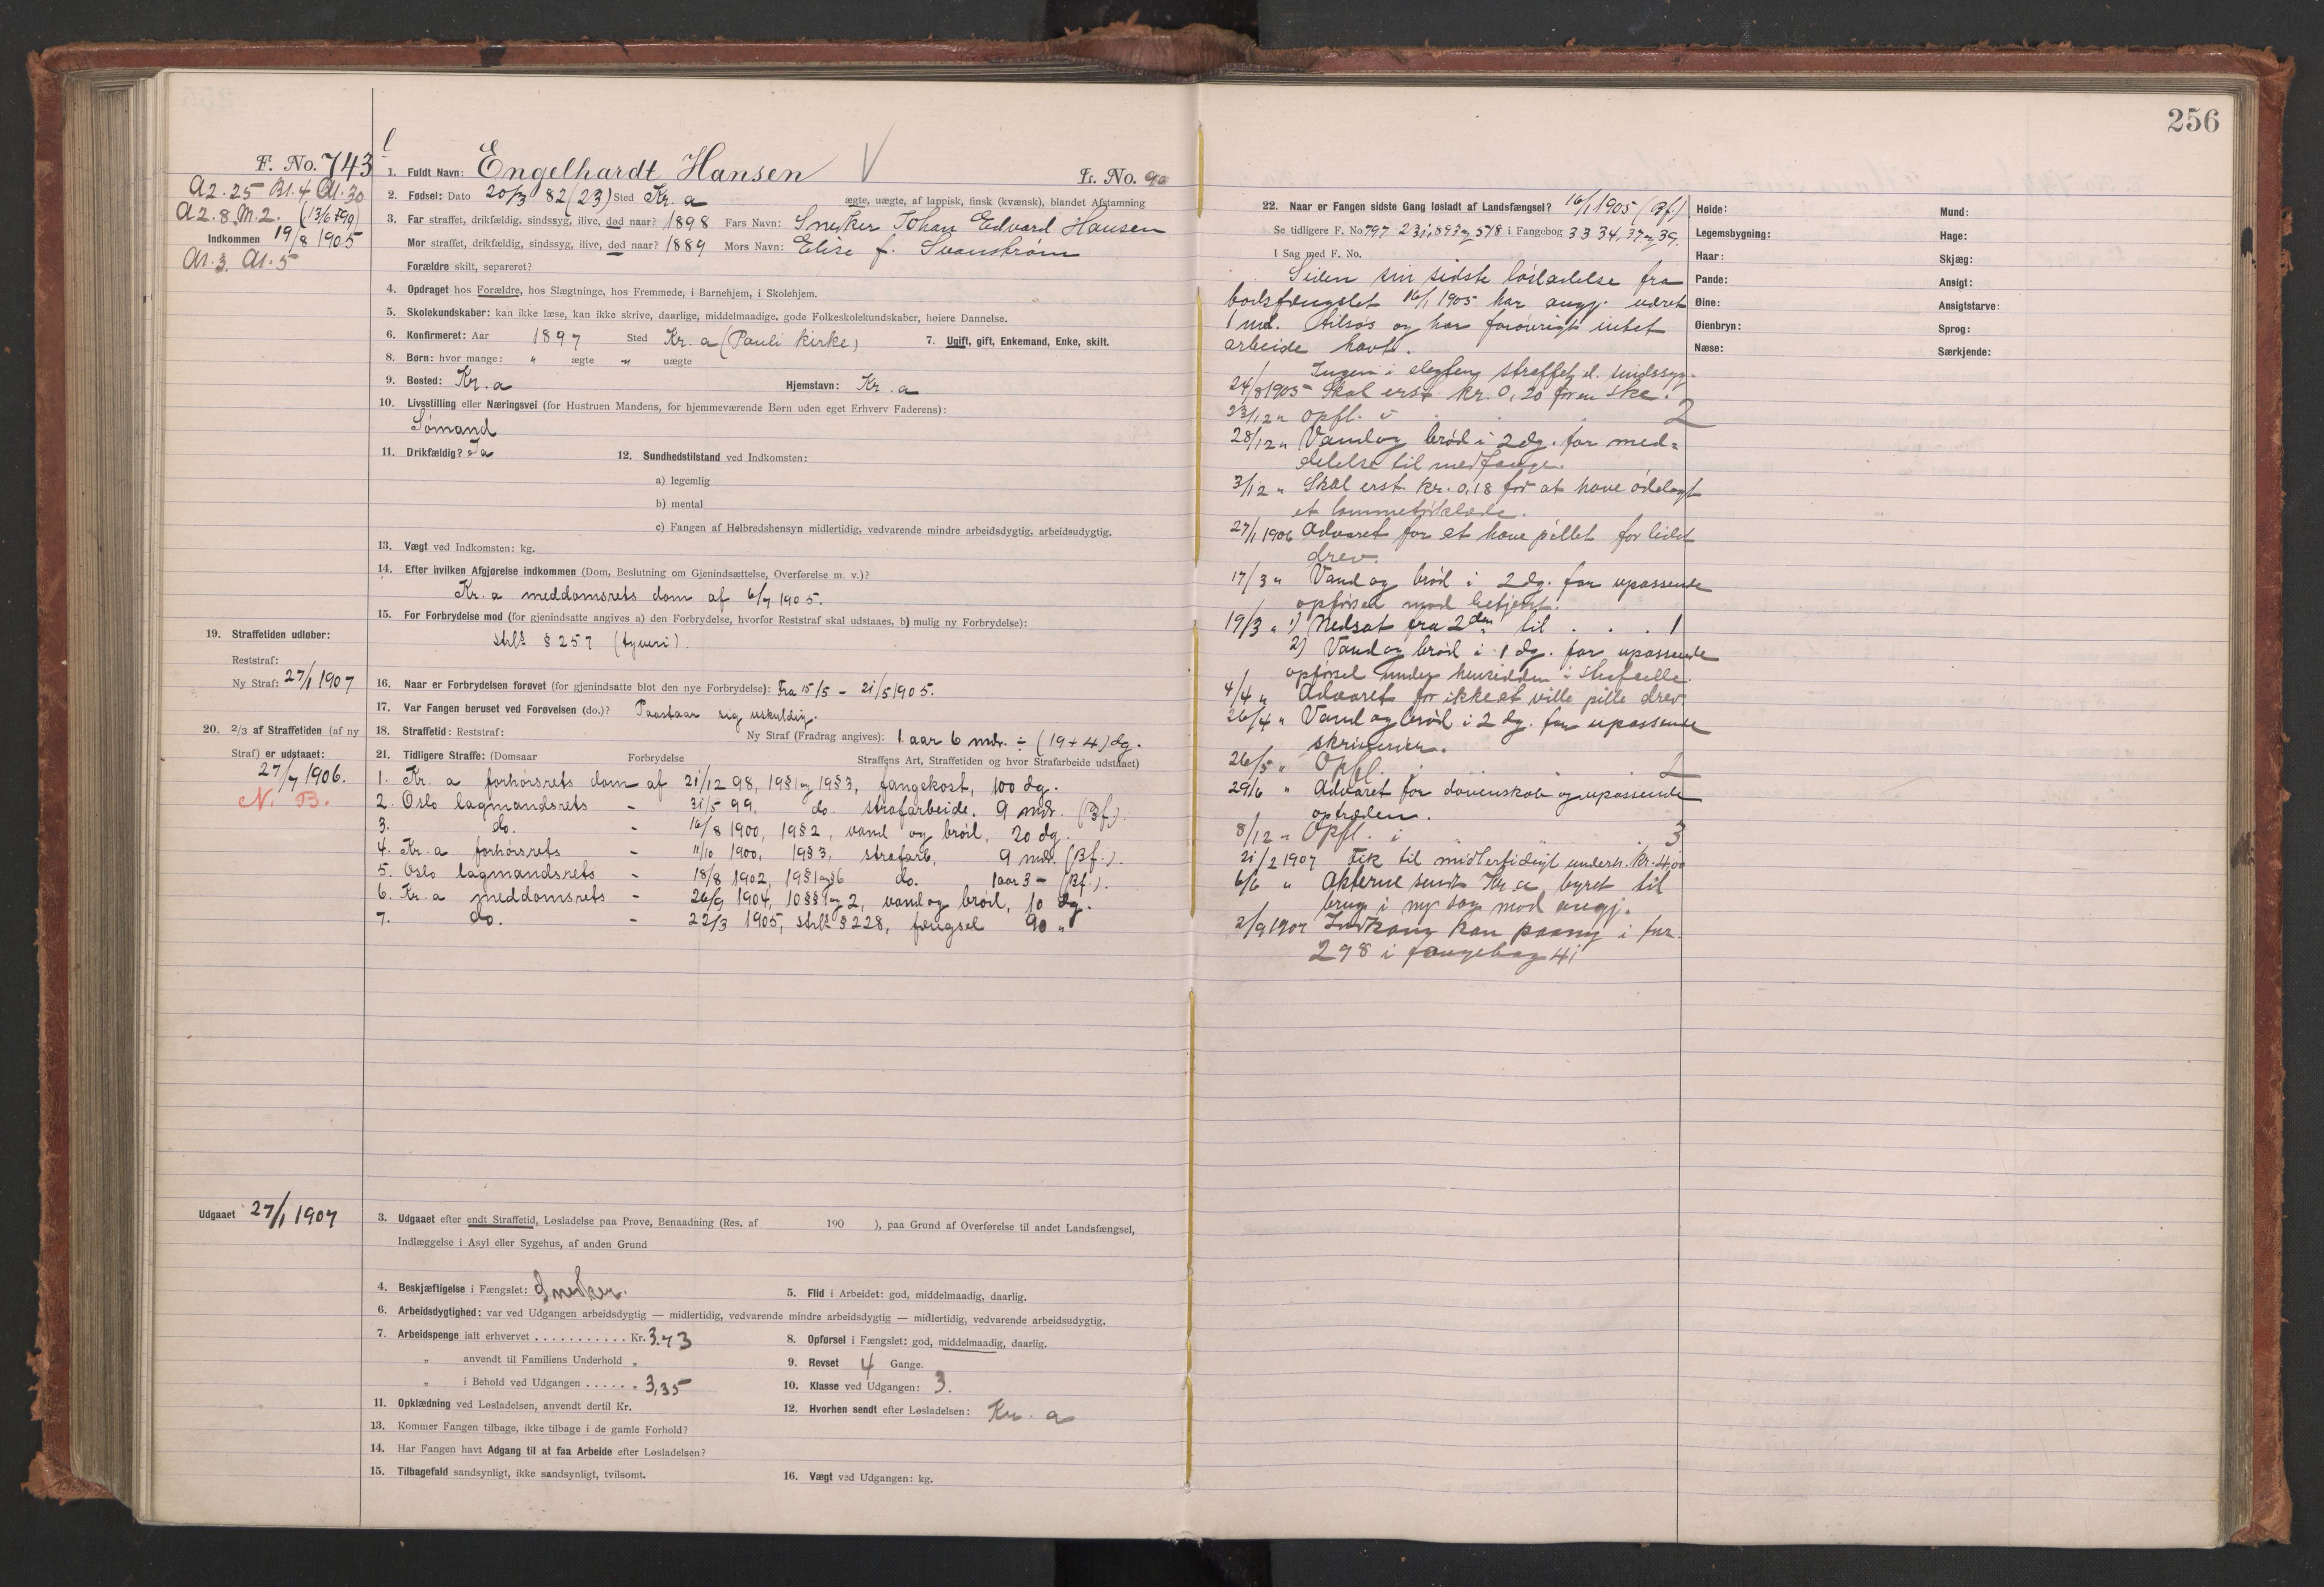 256
F. No. 743
A2. 25 B1. 4 A1. 30
A2. 8. M. 2. (13/6 890)
Indkommen 19/8 1905
A1. 3. A1. 5
1. Fuldt Navn: Engelhardt Hansen V L. No. 90
2. Fødsel: Dato 20/3 82 (23) Sted Kr.a ægte, uægte, af lappisk, finsk (kvænsk), blandet Afstamning
3. Far straffet, drikfældig, sindssyg, ilive, død naar? 1898 Fars Navn: Snedker Johan Edvard Hansen
Mor straffet, drikfældig, sindssyg, ilive, død naar? 1889 Mors Navn: Elise f. Svanstrøm
Forældre skilt, separeret?
4. Opdraget hos Forældre, hos Slægtninge, hos Fremmede, i Barnehjem, i Skolehjem.
5. Skolekundskaber: kan ikke læse, kan ikke skrive, daarlige, middelmaadige, gode Folkeskolekundskaber, høiere Dannelse.
6. Konfirmeret: Aar 1897 Sted Kr.a (Pauli kirke) 7. Ugift, gift, Enkemand, Enke, skilt.
8. Børn: hvor mange: " ægte " uægte
9. Bosted: Kr.a Hjemstavn: Kr.a
10. Livsstilling eller Næringsvei (for Hustruen Mandens, for hjemmeværende Børn uden eget Erhverv Faderens):
Sømand
11. Drikfældig? Ja 12. Sundhedstilstand ved Indkomsten:
a) legemlig
b) mental
c) Fangen af Helbredshensyn midlertidig, vedvarende mindre arbeidsdygtig, arbeidsudygtig.
13. Vægt ved Indkomsten: kg.
14. Efter hvilken Afgjørelse indkommen (Dom, Beslutning om Gjenindsættelse, Overførelse m. v.)?
Kr.a meddomsrets dom af 6/7 1905.
15. For Forbrydelse mod (for gjenindsatte angives a) den Forbrydelse, hvorfor Reststraf skal udstaaes, b) mulig ny Forbrydelse):
strl. § 257 (tyveri).
19. Straffetiden udløber:
Reststraf:
Ny Straf: 27/1 1907
16. Naar er Forbrydelsen forøvet (for gjenindsatte blot den nye Forbrydelse): Fra 15/5 - 21/5 1905.
17. Var Fangen beruset ved Forøvelsen (do.)? Paastaar sig uskyldig.
20. 2/3 af Straffetiden (af ny
Straf) er udstaaet:
27/7 1906.
N. B.
18. Straffetid: Reststraf: Ny Straf (Fradrag angives): 1 aar 6 mdr. ÷ (19 + 4) dg.
21. Tidligere Straffe: (Domsaar Forbrydelse Straffens Art, Straffetiden og hvor Strafarbeide udstaaet)
1. Kr.a forhørsrets dom af 21/12 98, 19 § 1 og 19 § 3, fangekost, 100 dg.
2. Oslo lagmandsrets - 31/5 99, do. strafarbeide. 9 mdr. (Bf.).
3. do. - 16/8 1900, 19 § 2, vand og brød, 20 dg.
4. Kr.a forhørsrets - 11/10 1900, 19 § 3, strafarb, 9 mdr. (Bf.).
5. Oslo lagmandsrets - 18/8 1902, 19 § 1 og 6 do. 1 aar 3 - (Bf.).
6. Kr.a meddomsrets - 26/9 1904, 10 §§ 1 og 2, vand og brød, 10 dg.
7. do. - 22/3 1905, strl. § 228, fængsel 90 "
Udgaaet 27/1 1907
3. Udgaaet efter endt Straffetid, Løsladelse paa Prøve, Benaadning (Res. af 190 ), paa Grund af Overførelse til andet Landsfængsel,
Indlæggelse i Asyl eller Sygehus, af anden Grund
4. Beskjæftigelse i Fængslet: Snedker. 5. Flid i Arbeidet: god, middelmaadig, daarlig.
6. Arbeidsdygtighed: var ved Udgangen arbeidsdygtig — midlertidig, vedvarende mindre arbeidsdygtig — midlertidig, vedvarende arbeidsudygtig.
7. Arbeidspenge ialt erhvervet . . . . . . . . . . . Kr. 3.43 8. Opførsel i Fængslet: god, middelmaadig, daarlig.
" anvendt til Familiens Underhold " 9. Revset 4 Gange.
" i Behold ved Udgangen . . . . . . " 3,35 10. Klasse ved Udgangen: 3.
11. Opklædning ved Løsladelsen, anvendt dertil Kr. 12. Hvorhen sendt efter Løsladelsen: Kr.a
13. Kommer Fangen tilbage, ikke tilbage i de gamle Forhold?
14. Har Fangen havt Adgang til at faa Arbeide efter Løsladelsen?
15. Tilbagefald sandsynligt, ikke sandsynligt, tvilsomt. 16. Vægt ved Udgangen: kg.
22. Naar er Fangen sidste Gang løsladt af Landsfængsel? 16/1 1905 (Bf.)
Se tidligere F. No 797 231, 893 og 578 i Fangebog 33 34, 37 og 39.
I Sag med F. No.
Siden sin sidste løsladelse fra
bodsfængslet 16/1 1905 har angj. været
1 md. tilsøs og har forøvrigt intet
arbeide havt.
Ingen i slegten straffet el. sindssyg.
24/8 1905 Skal erst. kr. 0,20 for en ske.
23/12 " Opfl. i . . . 2
28/12 " Vand og brød i 2 dg. for med=
delelse til medfange.
3/12 " Skal erst. kr. 0,18 for at have ødelagt
et lommetørklæde.
27/1 1906 Advaret for at have pillet for lidet
drev.
17/3 " Vand og brød i 2 dg. for upassende
opførsel mod betjent.
19/3 " 1) Nedsat fra 2den til . . . 1
2) Vand og brød i 1 dg. for upassende
opførsel under hensidden i strafcelle.
4/4 " Advaret for ikke at ville pille drev.
26/4 " Vand og brød i 2 dg. for upassende
skriverier.
26/5 " Opfl. i . . . 2
29/6 " Advaret for dovenskab og upassende
optræden.
8/12 " Opfl. i . . . 3
21/2 1907 Fik til midlertidigt underh. kr. 4,00
6/6 " Akterne sendt Kr.a byret til
brug i ny sag mod angj.
2/9 1907 Indkom han paany i fnr.
298 i fangebog 41
Høide:
Legemsbygning:
Haar:
Pande:
Øine:
Øienbryn:
Næse:
Mund:
Hage:
Skjæg:
Ansigt:
Ansigtsfarve:
Sprog:
Særkjende: